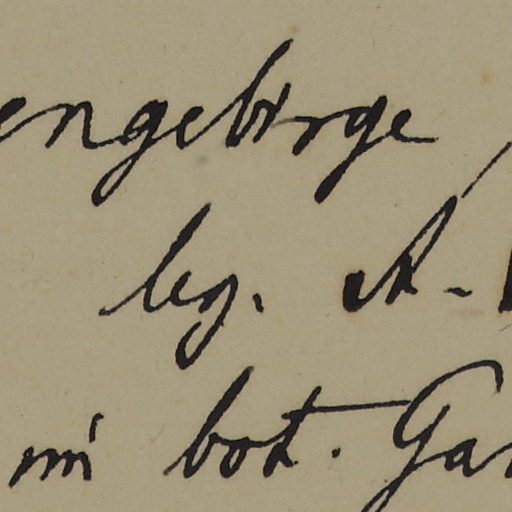 engebirge
leg. A.
im bot. Gar